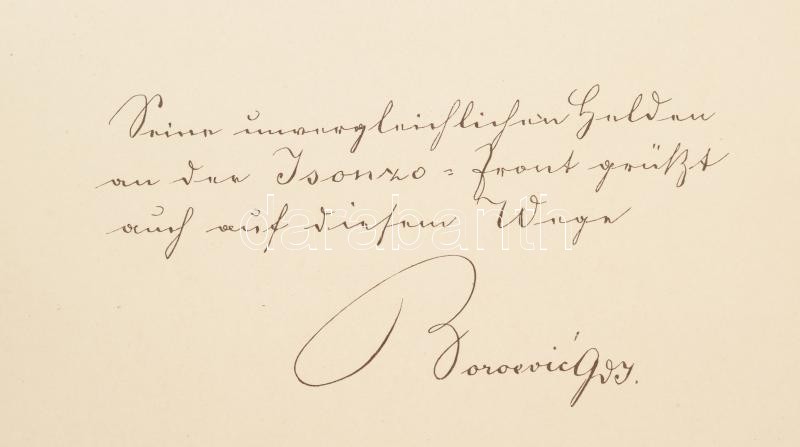 Seine unvergleichlichen Helden
an der Isonzo=Front grüßt
auch auf diesem Wege
darabanth
Boroević GdI.